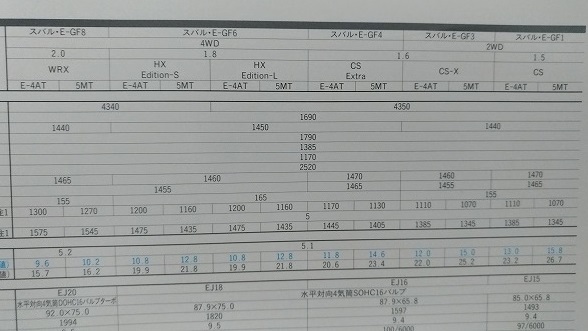 スバル・E-GF8 スバル・E-GF6 スバル・E-GF4 スバル・E-GF3 スバル・E-GF1
4WD 2WD
2.0 1.8 1.6 1.5
WRX HX Edition-S HX Edition-L CS Extra CS-X CS
E-4AT 5MT E-4AT 5MT E-4AT 5MT E-4AT 5MT E-4AT 5MT E-4AT 5MT
4340 4350
1690
1440 1450 1440
1790
1385
1170
2520
1465 1460 1470 1460 1470
1455 1465 1455 1465
155 165 155
注1 1300 1270 1200 1160 1200 1160 1170 1130 1110 1070 1110 1070
5
注1 1575 1545 1475 1435 1475 1435 1445 1405 1385 1345 1385 1345
5.2 5.1
値) 9.6 10.2 10.8 12.8 10.8 12.8 11.8 14.6 12.0 15.0 13.0 15.8
値) 15.7 16.2 19.9 21.8 19.9 21.8 20.6 23.4 22.0 25.2 23.2 26.7
EJ20 EJ18 EJ16 EJ15
水平対向4気筒SOHC16バルブターボ 水平対向4気筒SOHC16バルブ
92.0×75.0 87.9×75.0 87.9×65.8 85.0×65.8
1994 1820 1597 1493
9.5 9.4 9.4
100/6000 97/6000